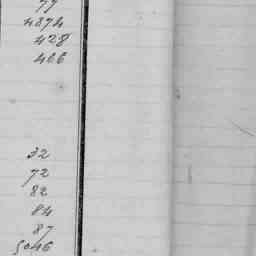 77
4874
428
466
32
72
82
84
87
5046